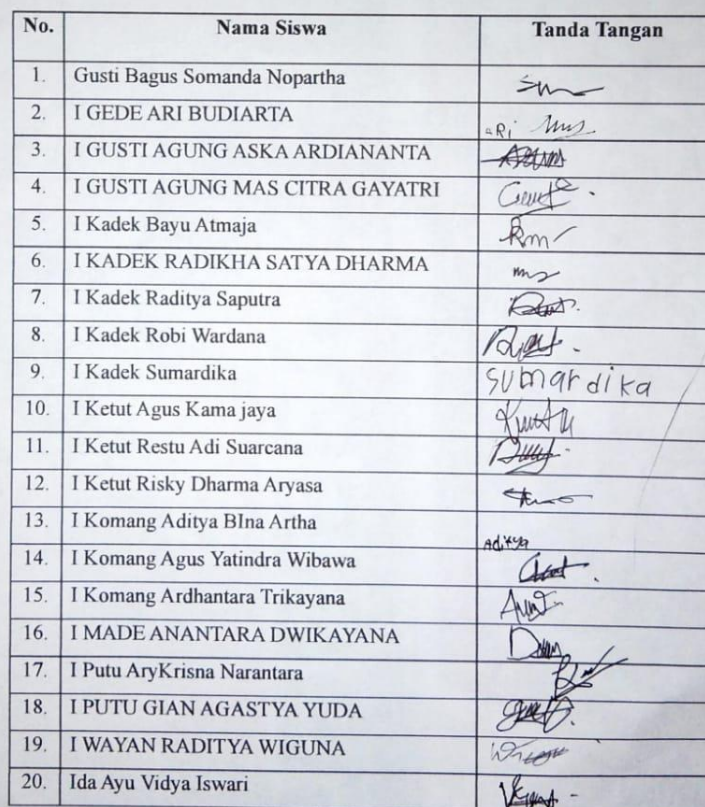 No. Nama Siswa Tanda Tangan
1. Gusti Bagus Somanda Nopartha
2. I GEDE ARI BUDIARTA
ARi
3. I GUSTI AGUNG ASKA ARDIANANTA
4. I GUSTI AGUNG MAS CITRA GAYATRI
5. I Kadek Bayu Atmaja
6. I KADEK RADIKHA SATYA DHARMA
7. I Kadek Raditya Saputra
8. I Kadek Robi Wardana
9. I Kadek Sumardika sumardika
10. I Ketut Agus Kama jaya
11. I Ketut Restu Adi Suarcana
12. I Ketut Risky Dharma Aryasa
13. I Komang Aditya BIna Artha
Aditya
14. I Komang Agus Yatindra Wibawa
15. I Komang Ardhantara Trikayana
16. I MADE ANANTARA DWIKAYANA
17. I Putu AryKrisna Narantara
18. I PUTU GIAN AGASTYA YUDA
19. I WAYAN RADITYA WIGUNA
20. Ida Ayu Vidya Iswari